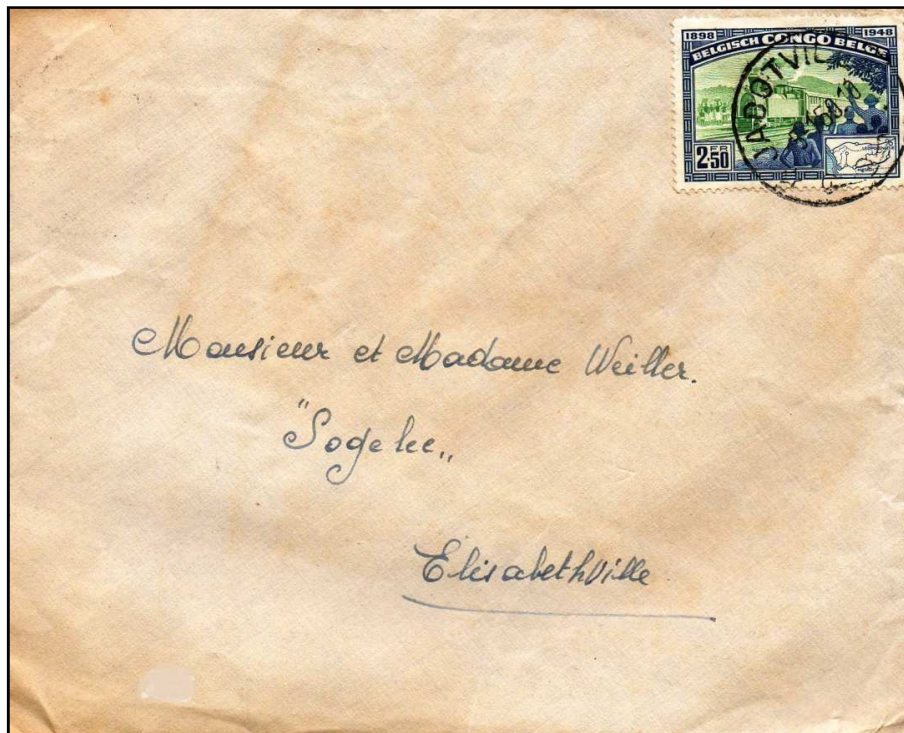 1898 1948
BELGISCH CONGO BELGE
2.50
FR
JADOTVIL
Monsieur et Madame Weiller.
"Sogelec"
Elisabethville